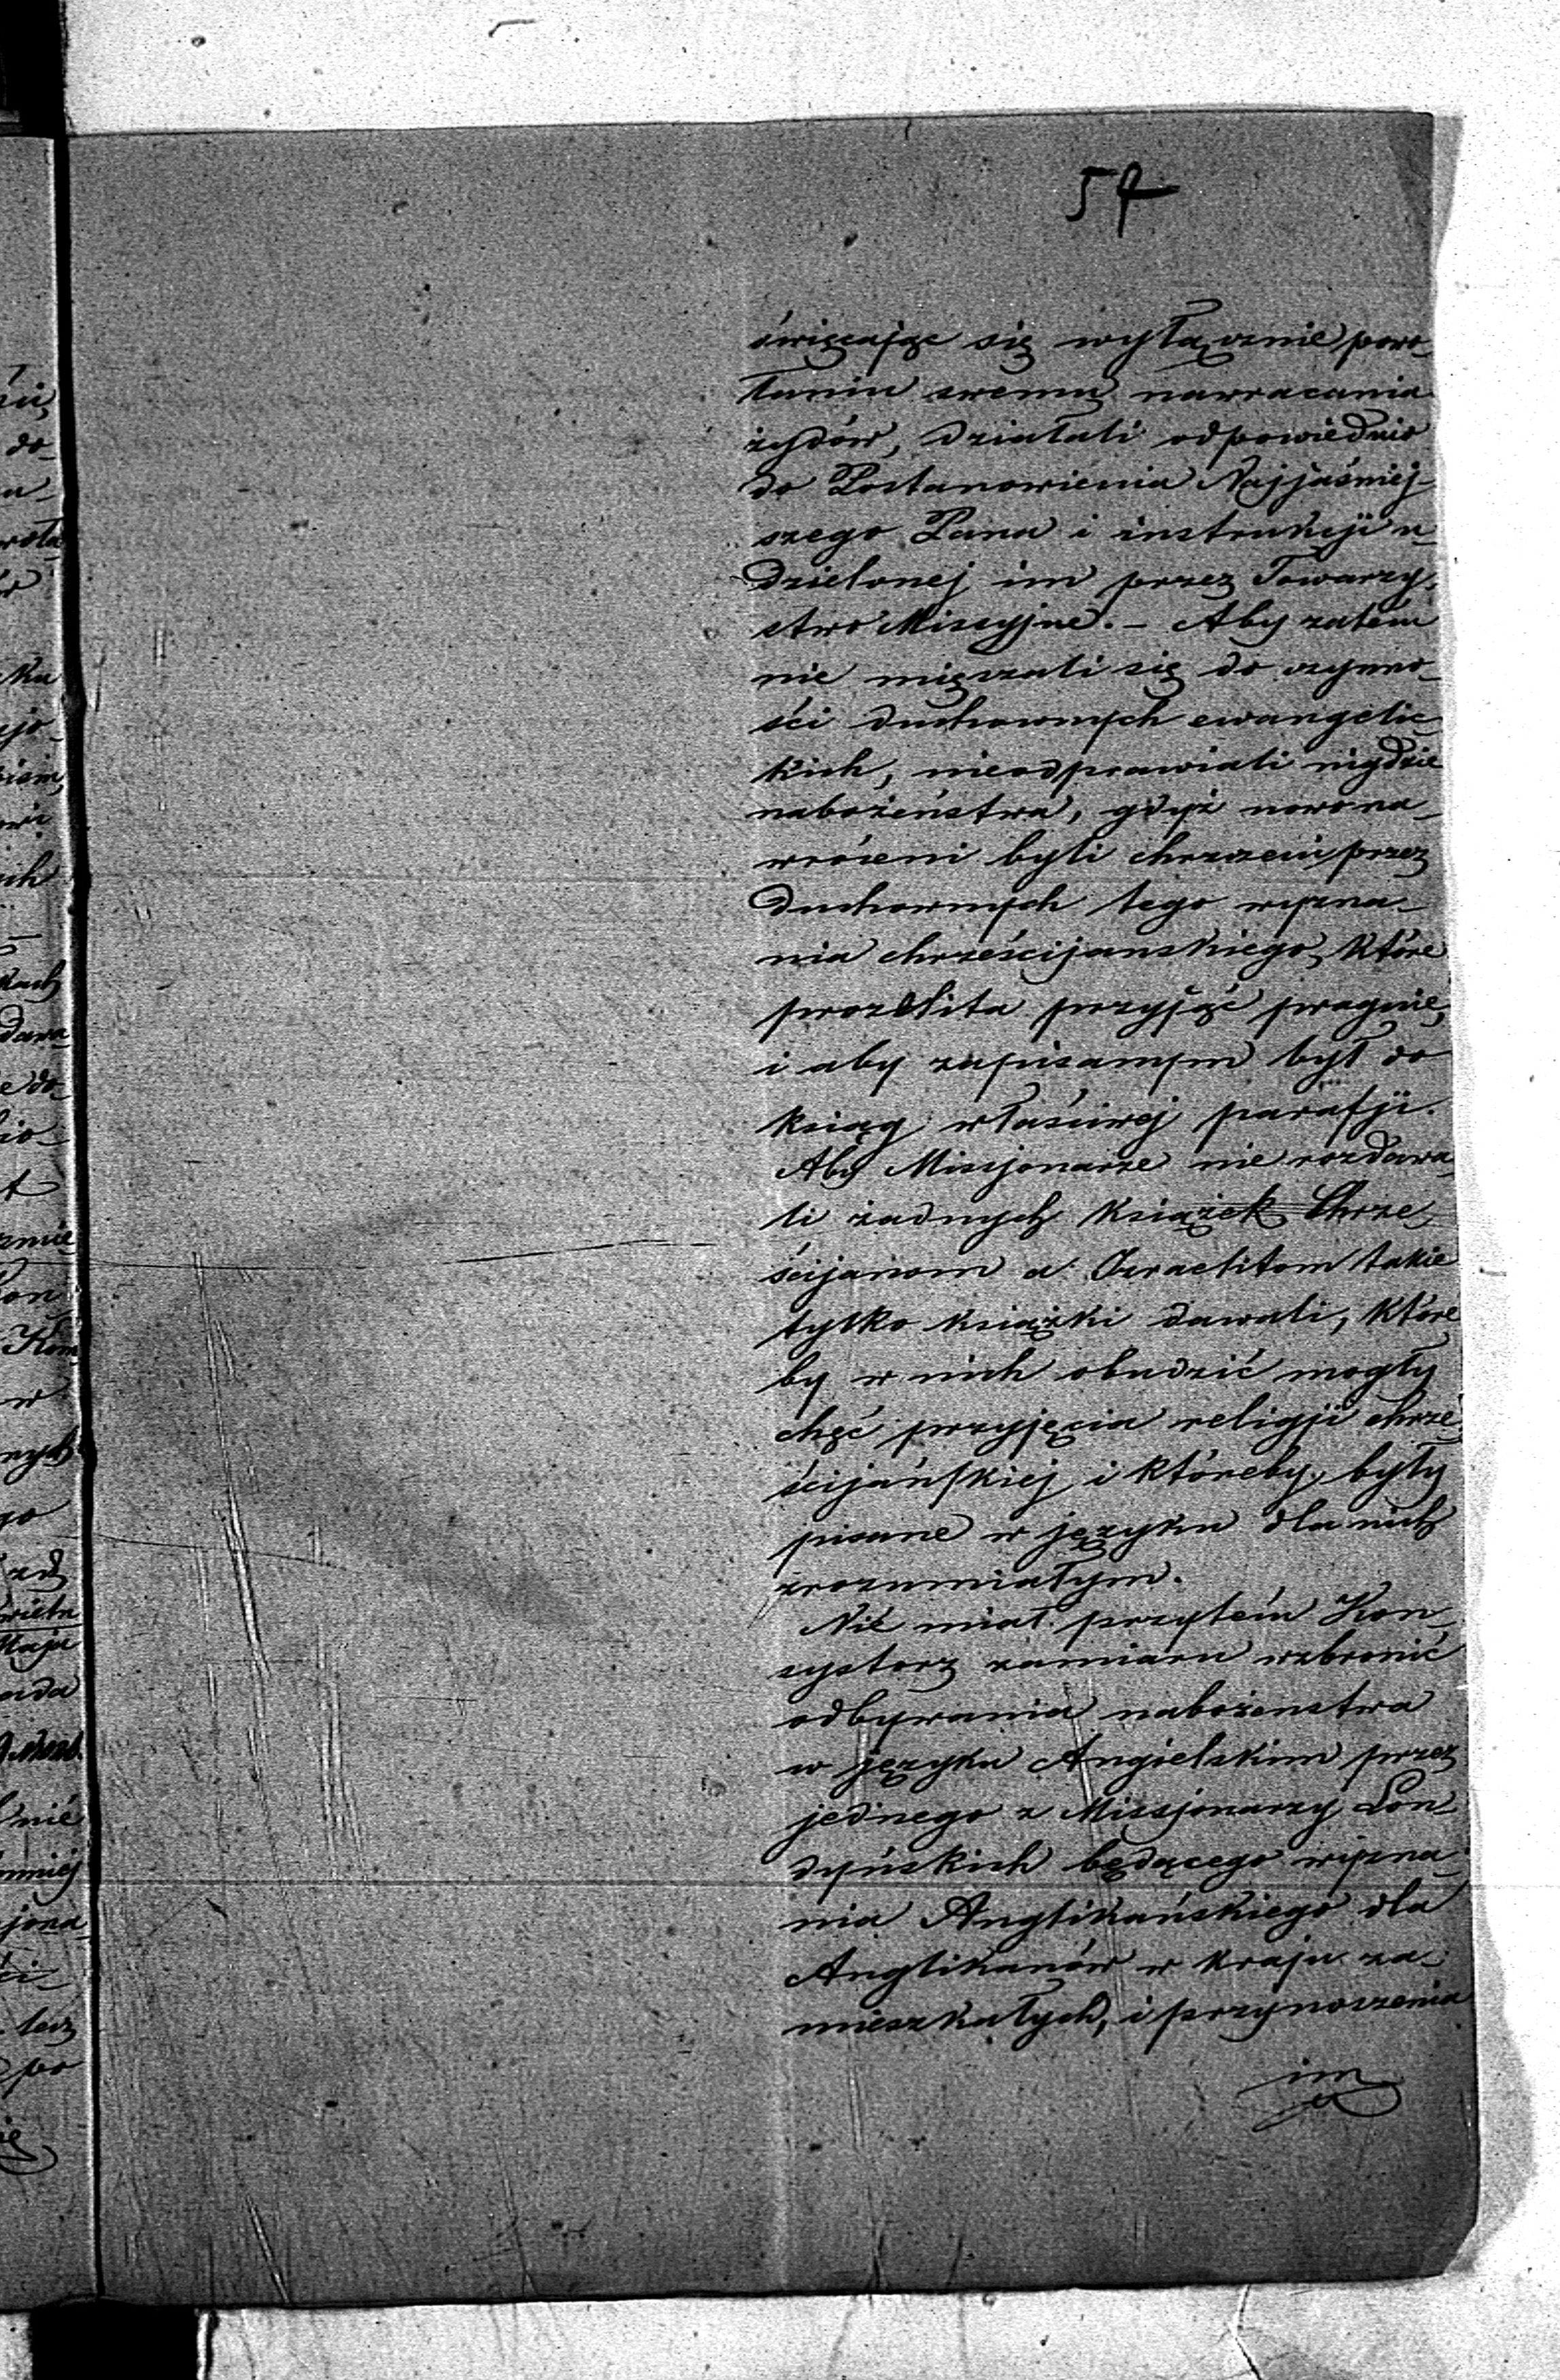 57
święcając się wyłącznie powo-
łaniu swemu nawracania
żydów, działali odpowiednio
do Postanowienia Najjaśniej-
szego Pana i instrukcji u-
dzielonej im przez Towarzy-
stwo Missyjne. – Aby zatém
nie mięszali się do czynno-
ści duchownych ewangelic-
kich, nieodprawiali nigdzie
nabożeństwa, gdyż nowona-
wróceni byli chrzczeni przez
duchownych tego wyzna-
nia chrześcijanskiego, które
prozelita przyjąć pragnie,
i aby zapisanym był do
ksiąg właściwej parafji.
Aby Missjonarze nie rozdawa-
li żadnych książek Chrze-
ścijanom a Izraelitom takie
tylko książki dawali, które
by w nich obudzić mogły
chęć przyjęcia religji chrze-
ścijańskiej i któreby były
pisane w języku dla nich
zrozumiałym.
Nié miał przytém Kon-
systorz zamiaru wzbronić
odbywania nabożenstwa
w języku Angielskim przez
jednego z Missjonarzy Lon-
dyńskich będącego wyzna-
nia Anglikańskiego dla
Anglikanów w kraju za-
mieszkałych, i przynoszenia
im